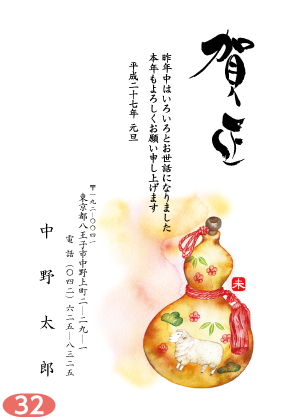 賀正
昨年中はいろいろとお世話になりました
本年もよろしくお願い申し上げます
平成二十七年 元旦
未
〒一九二-〇〇四一
東京都八王子市中野上町二-二九-一
電話(〇四二)六二五-八三二五
中野太郎
32